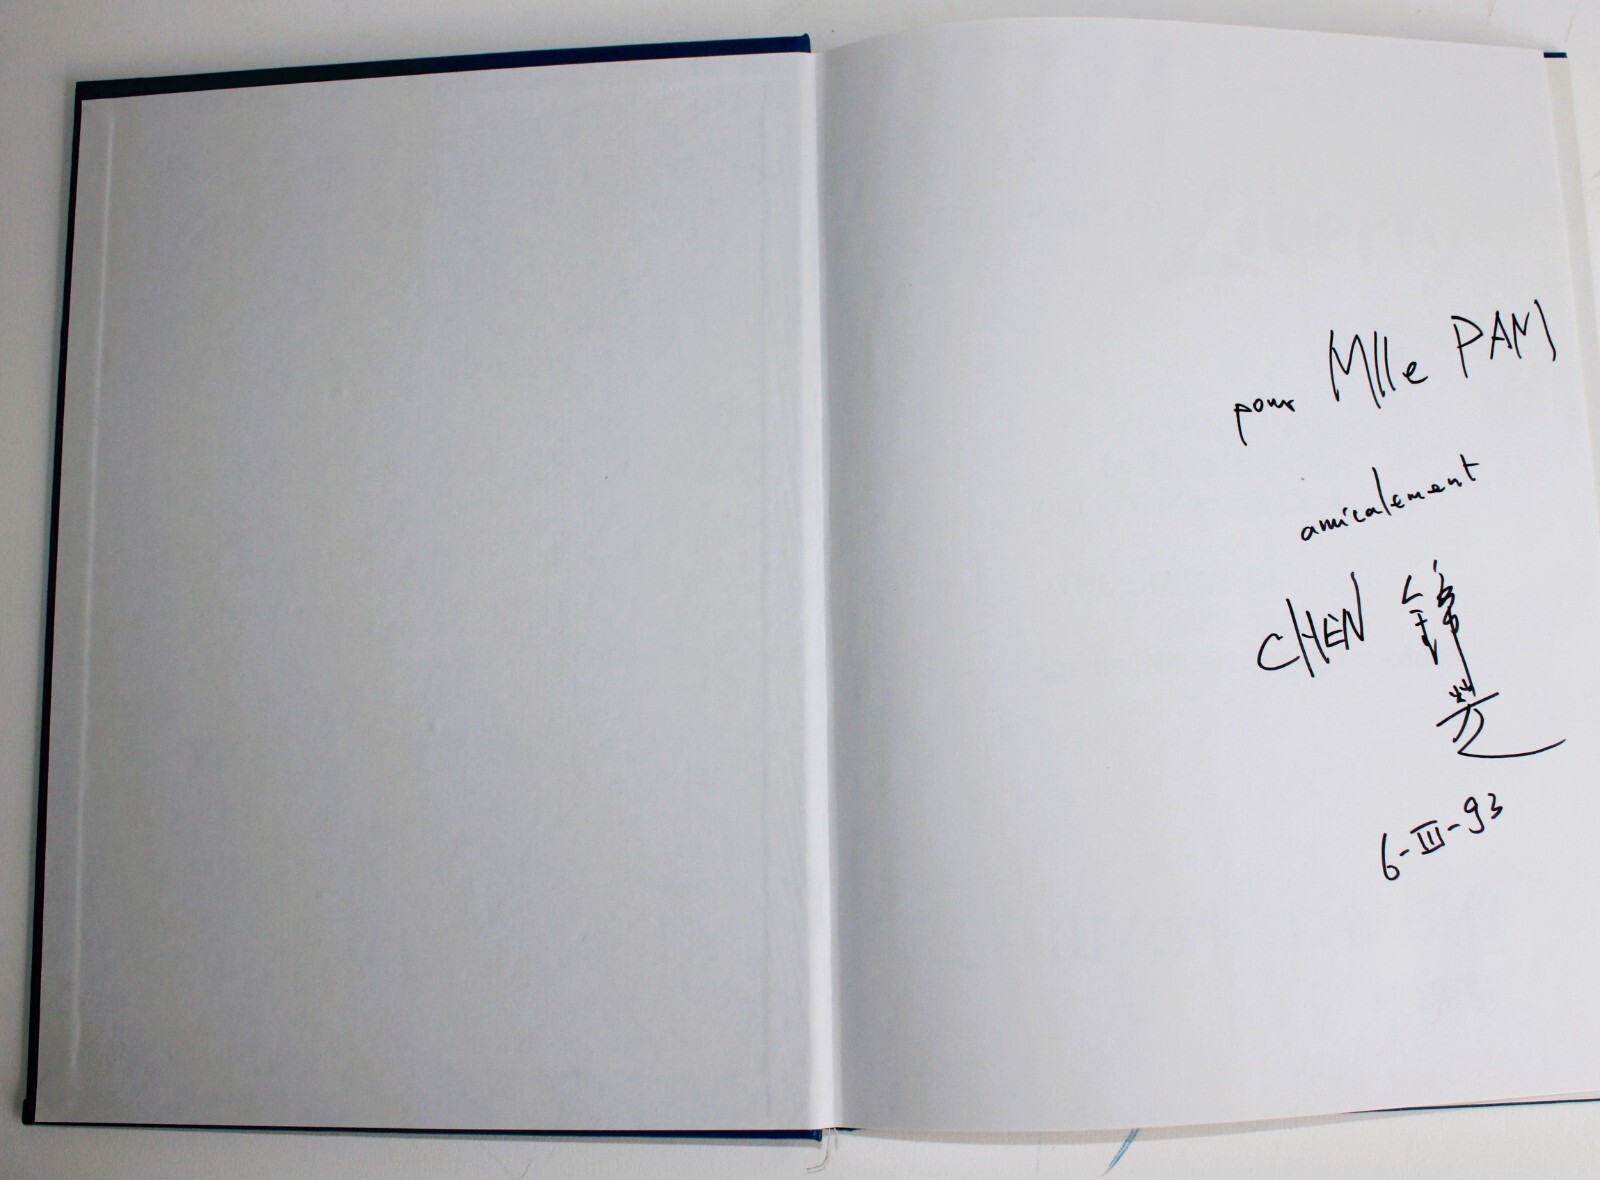 pour Mlle PAM
amicalement
CHEN
6-III-93